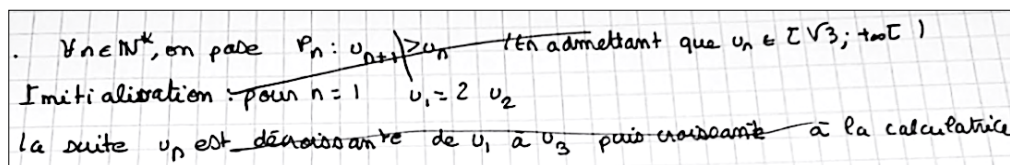 . ∀n∈ℕ*, on pose Pn : u_{n+1} ≥ u_n (En admettant que u_n ∈ [√3 ; +∞[ )
Initialisation : pour n = 1 u_1 = 2 u_2
la suite u_n est décroissante de u_1 à u_3 puis croissante à la calculatrice